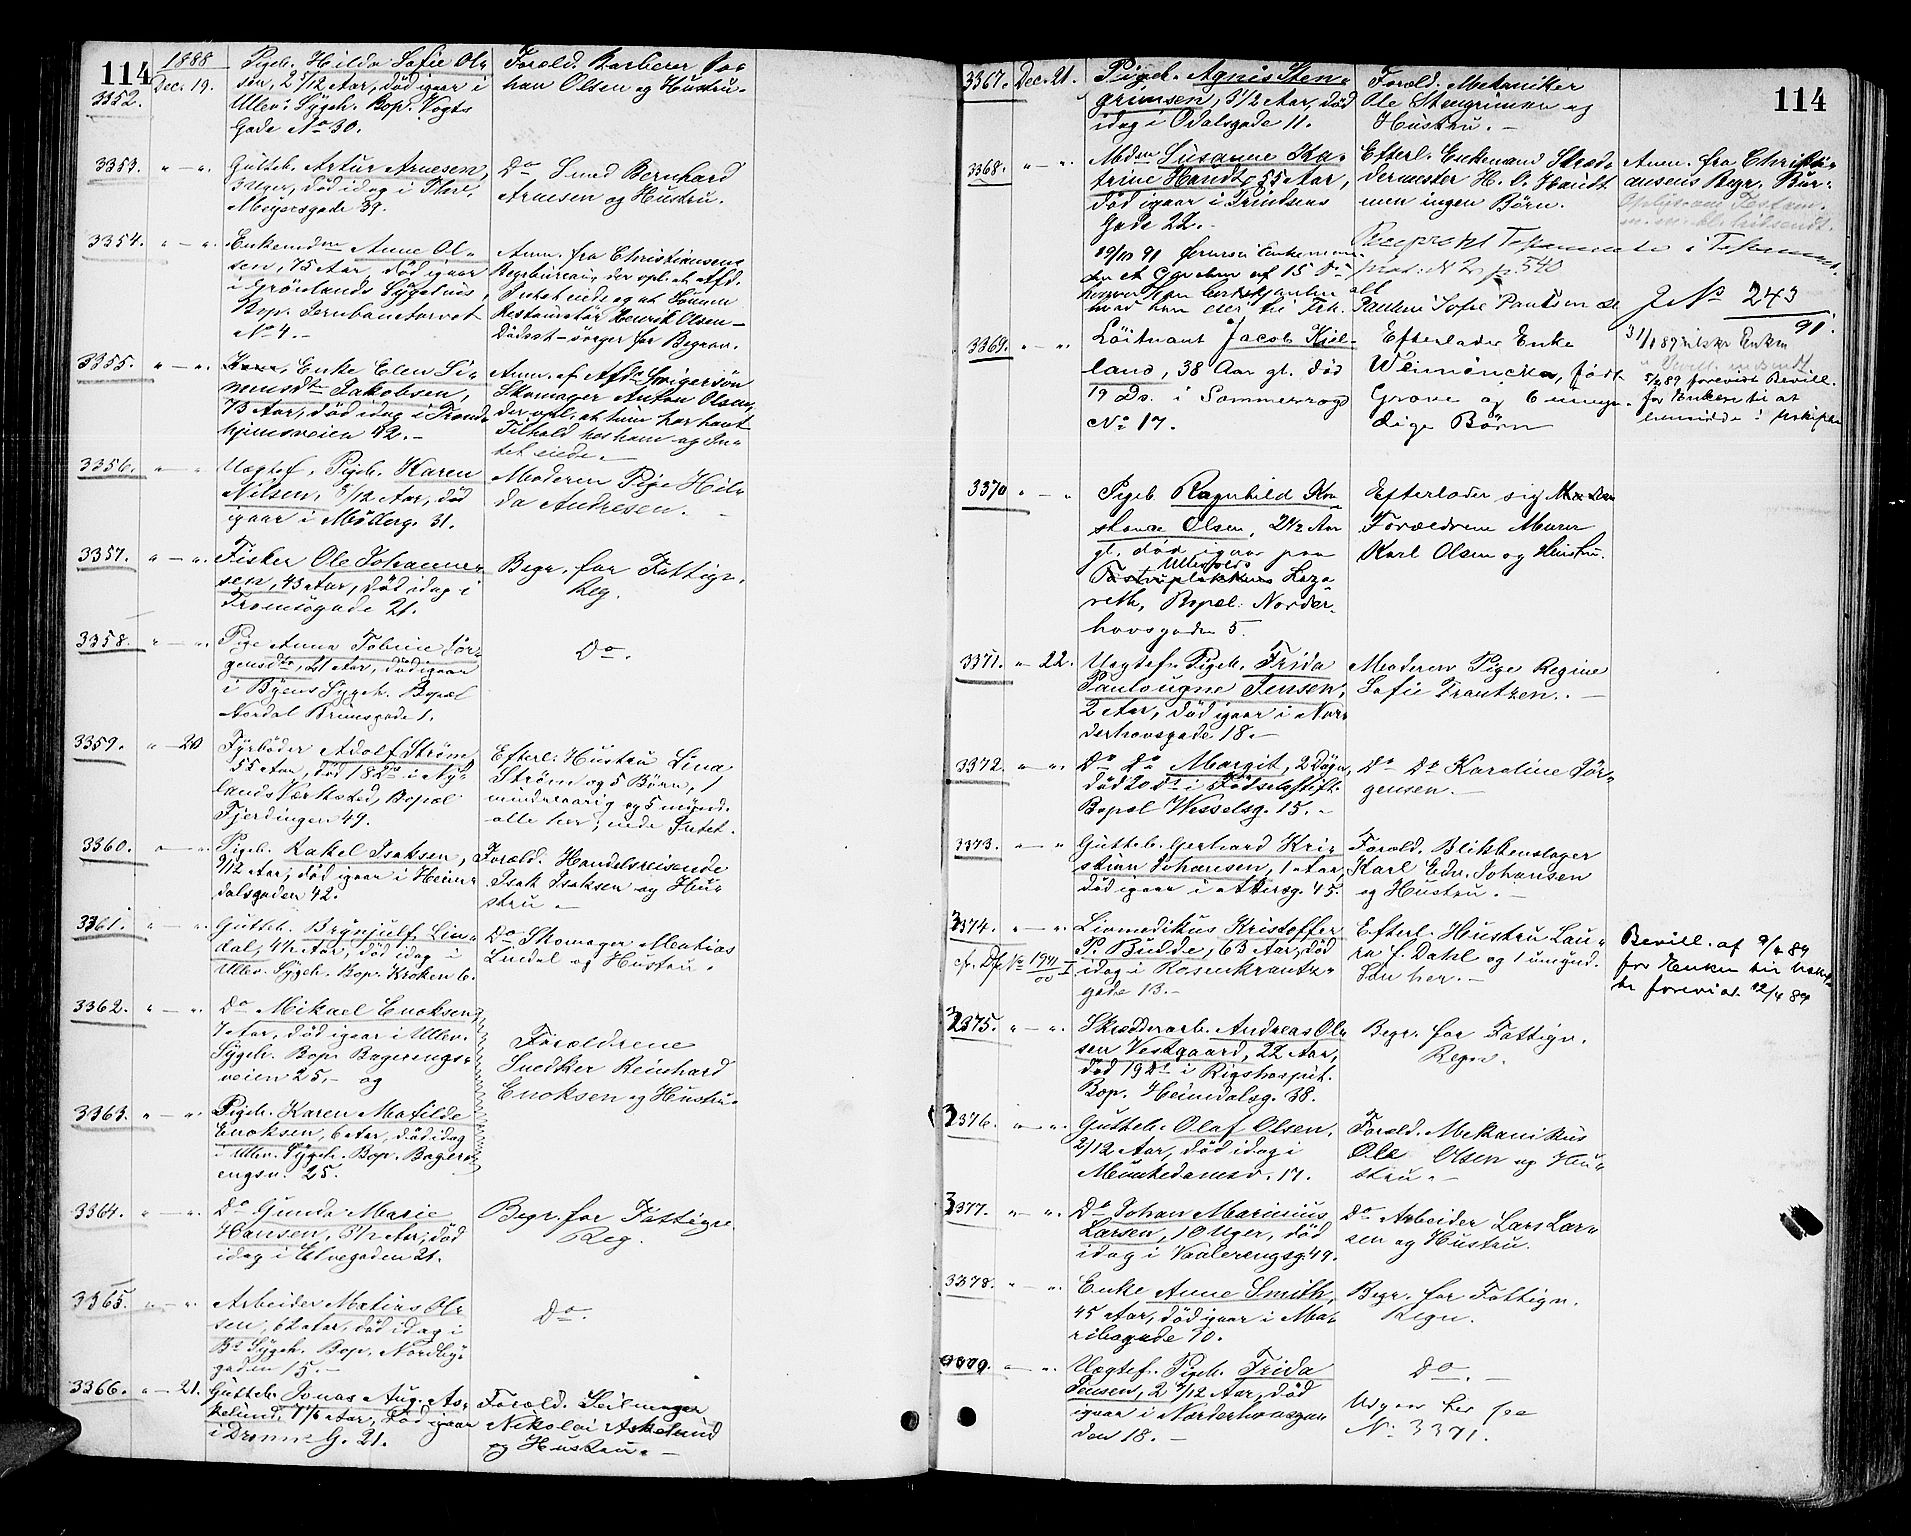 114
1888
3352. Dec. 19. Pigeb. Hilda Sofie Ol-
sen, 2 5/12 Aar, død igaar i
Ullev. Sygeh. Bop. Vogts
Gade No 30.
Foræld. Barberer Jo-
han Olsen og Hustru.
3353. " — " Gutteb. Artur Arnesen,
3 Uger, død idag i Thorv.
Meyersgade 39.
Do Smed Bernhard
Arnesen og Hustru.
3354. " — " Enkemdme Anne Ol-
sen, 75 Aar, død igaar
i Grønlands Sygehus,
Bop. Jernbanetorvet
No 4. —
Anm. fra Christiansens
Begr.bureau, der opl. at Afd.
Intet eiede og at Sønnen
Restauratør Henrik Olsen —
Dødsst. — sørger for Begrav.
3355. " — " Enke Elen Si-
monsdtr Jakobsen,
73 Aar, død idag i Trond-
hjemsveien 42. —
Anm. af Afdes Svigersøn
Skomager Anton Olsen,
der opl. at hun har havt
Tilhold hos ham og In-
tet eiede. —
3356. " — " Uægtef. Pigeb. Karen
Nilsen, 5/12 Aar, død
igaar i Møllerg. 31.
Moderen Pige Hil-
da Andresen. —
3357. " — " Fisker Ole Johanne-
sen, 43 Aar, død idag i
Tromsøgade 21.
Begr. for Fattigv.
Reg.
3358. " — " Pige Anna Tobine Jør-
gensdtr, 21 Aar, død igaar
i Byens Sygeh. Bopæl
Nordal Brunsgade 1.
Do.
3359. " — 20 Fyrbøder Adolf Strøm,
55 Aar, død 18 ds i Ny-
lands Værksted, Bopæl
Fjerdingen 49.
Efterl. Hustru Lina
Strøm og 5 Børn, 1
mindreaarig og 5 mynd.
alle her, eiede Intet.
3360. " — " Pigeb. Rakel Isaksen,
9/12 Aar, død igaar i Heim-
dalsgaden 42.
Foræld. Handelsreisende
Isak Isaksen og Hu-
stru —
3361. " — " Gutteb. Brynjulf Lin-
dal, 4 1/2 Aar, død idag i
Ullev. Sygeh. Bop. Kroken 6.
Do Skomager Mathias
Lindal og Hustru.
3362. " — " Do Mikael Enoksen,
7 Aar, død igaar i Ullev.
Sygeh. Bop. Bagerengs-
veien 25, — og
Forældrene
Snedker Reinhard
Enoksen og Hustru.
3363. " — " Pigeb. Karen Matilde
Enoksen, 6 Aar, død idag
i Ullev. Sygeh. Bop. Bager-
engsv. 25.
3364. " — " Do Gunda Marie
Hansen, 3 1/2 Aar, død
idag i Elvegaden 21.
Begr. for Fattigv.
Reg.
3365. " — " Arbeider Matias Ol-
sen, 62 Aar, død idag i
Bs Sygeh. Bop. Nordby-
gaden 15. —
Do.
3366. " — 21. Gutteb. Jonas Aug. As-
kelund, 7 1/6 Aar, død igaar
i Dronn. G. 21.
Foræld. Seilmager
Nikolai Askelund
og Hustru. —
114
3367. Dec. 21. Pigeb. Agnis Sten-
grimsen, 3 1/2 Aar, død
idag i Odalsgade 11.
Foræld. Mekaniker
Ole Stengrimsen og
Hustru. —
3368. " — " Mdm Susanne Ka-
trine Handt, 55 Aar,
død igaar i Prindsens
Gade 22. —
Efterl. Enkemand Skræd-
dermester H. O. Handt
men ingen Børn.
Anm. fra Christi-
ansens Begr. Bur-
Reciprokt Testamente i Testament-
prot. N 2 p. 540
J No 243
91.
3369. " — " Løitnant Jacob Kiel-
land, 38 Aar gl. død
19 Ds. i Sommerrogd
No 17.
Efterlader Enke
født
Grove og 6 umyn-
dige Børn
5/2 89 forevist Bevill.
for Enken til at
hensidde i uskiftet
3370 " — " Pigeb Ragnhild Kon
stance Olsen, 2 1/2 Aar
gl. død igaar paa
Ullevolds
Laza
reth, Bopæl: Norder-
hovsgaden 5.
Efterlader sig
Forældrene Murer
Karl Olsen og Hustru.
3371. " — 22. Uægtef. Pigeb. Frida
Paulougne Jensen,
2 Aar, død igaar i Nor-
derhovsgade 18. —
Moderen Pige Regine
Sofie Frantzen. —
3372. " — " Do Do Margit, 2 Døgn,
død 20 ds i Fødselsstift.
Bopæl Wesselsg. 15. —
Do Do Karoline Jør-
gensen. —
3373. " — " Gutteb. Gerhard Kri-
stian Johansen, 1 Aar,
død igaar i Akersg. 45.
Foræld. Blikkenslager
Karl Edv. Johansen
og Hustru. —
3374. " — " Livmedikus Kristoffer
P. Budde, 63 Aar, død
idag i Rosenkrantz-
gade 13. —
Efterl. Hustru Lau-
ra f. Dahl og 1 umynd.
Søn her. —
Bevill. af 9/4 89
for Enken til
forevist. 12/4 89
3375. " — " Skrædderarb. Andreas Ol-
sen Vestgaard, 22 Aar,
død 19 ds i Rigshospit.
Bop. Heimdalsg. 38.
Begr. for Fattigv.
Regn.
3376. " — " Gutteb. Olaf Olsen,
2/12 Aar, død idag i
Munkedamsv. 17.
Foræld. Mekanikus
Ole Olsen og Hu-
stru. —
3377. " — " Do Johan Marinius
Larsen, 10 Uger, død
idag i Vaalerengsg. 49.
Do Arbeider Lars Lar-
sen og Hustru.
3378. " — " Enke Anne Smith,
45 Aar, død igaar i Ma-
ribogade 10.
Begr. for Fattigv.
Regn.
" — " Uægtef. Pigeb. Frida
Jensen, 2 2/12 Aar, død
igaar i Norderhovsga-
den 18. —
Do. —
Udgaar her se
No 3371.